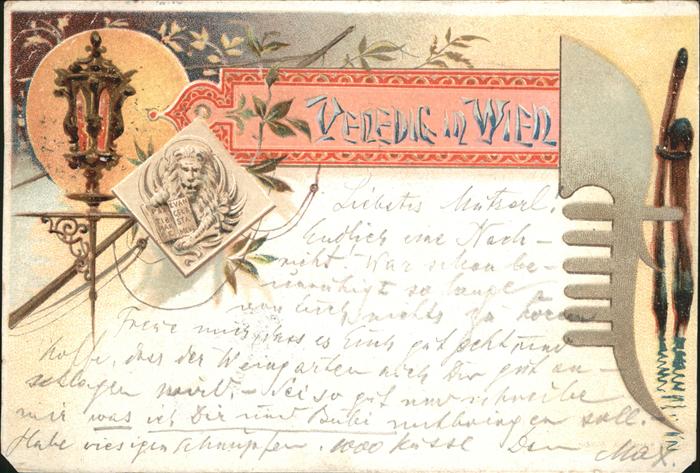 VENEDIG in WIEN
EVAN
GELI
STA
Liebstes Mutzerl.
Endlich eine Nach-
richt. War schon be-
unruhigt so lange
von Euch nichts zu hören
Freue mich dass es Euch gut geht und
hoffe, dass der Weingarten auch Dir gut an-
schlagen wird. – Sei so gut und schreibe
mir was ich Dir und Bubi mitbringen soll.
Habe riesigen Schnupfen. 1000 Küsse Dein Max.